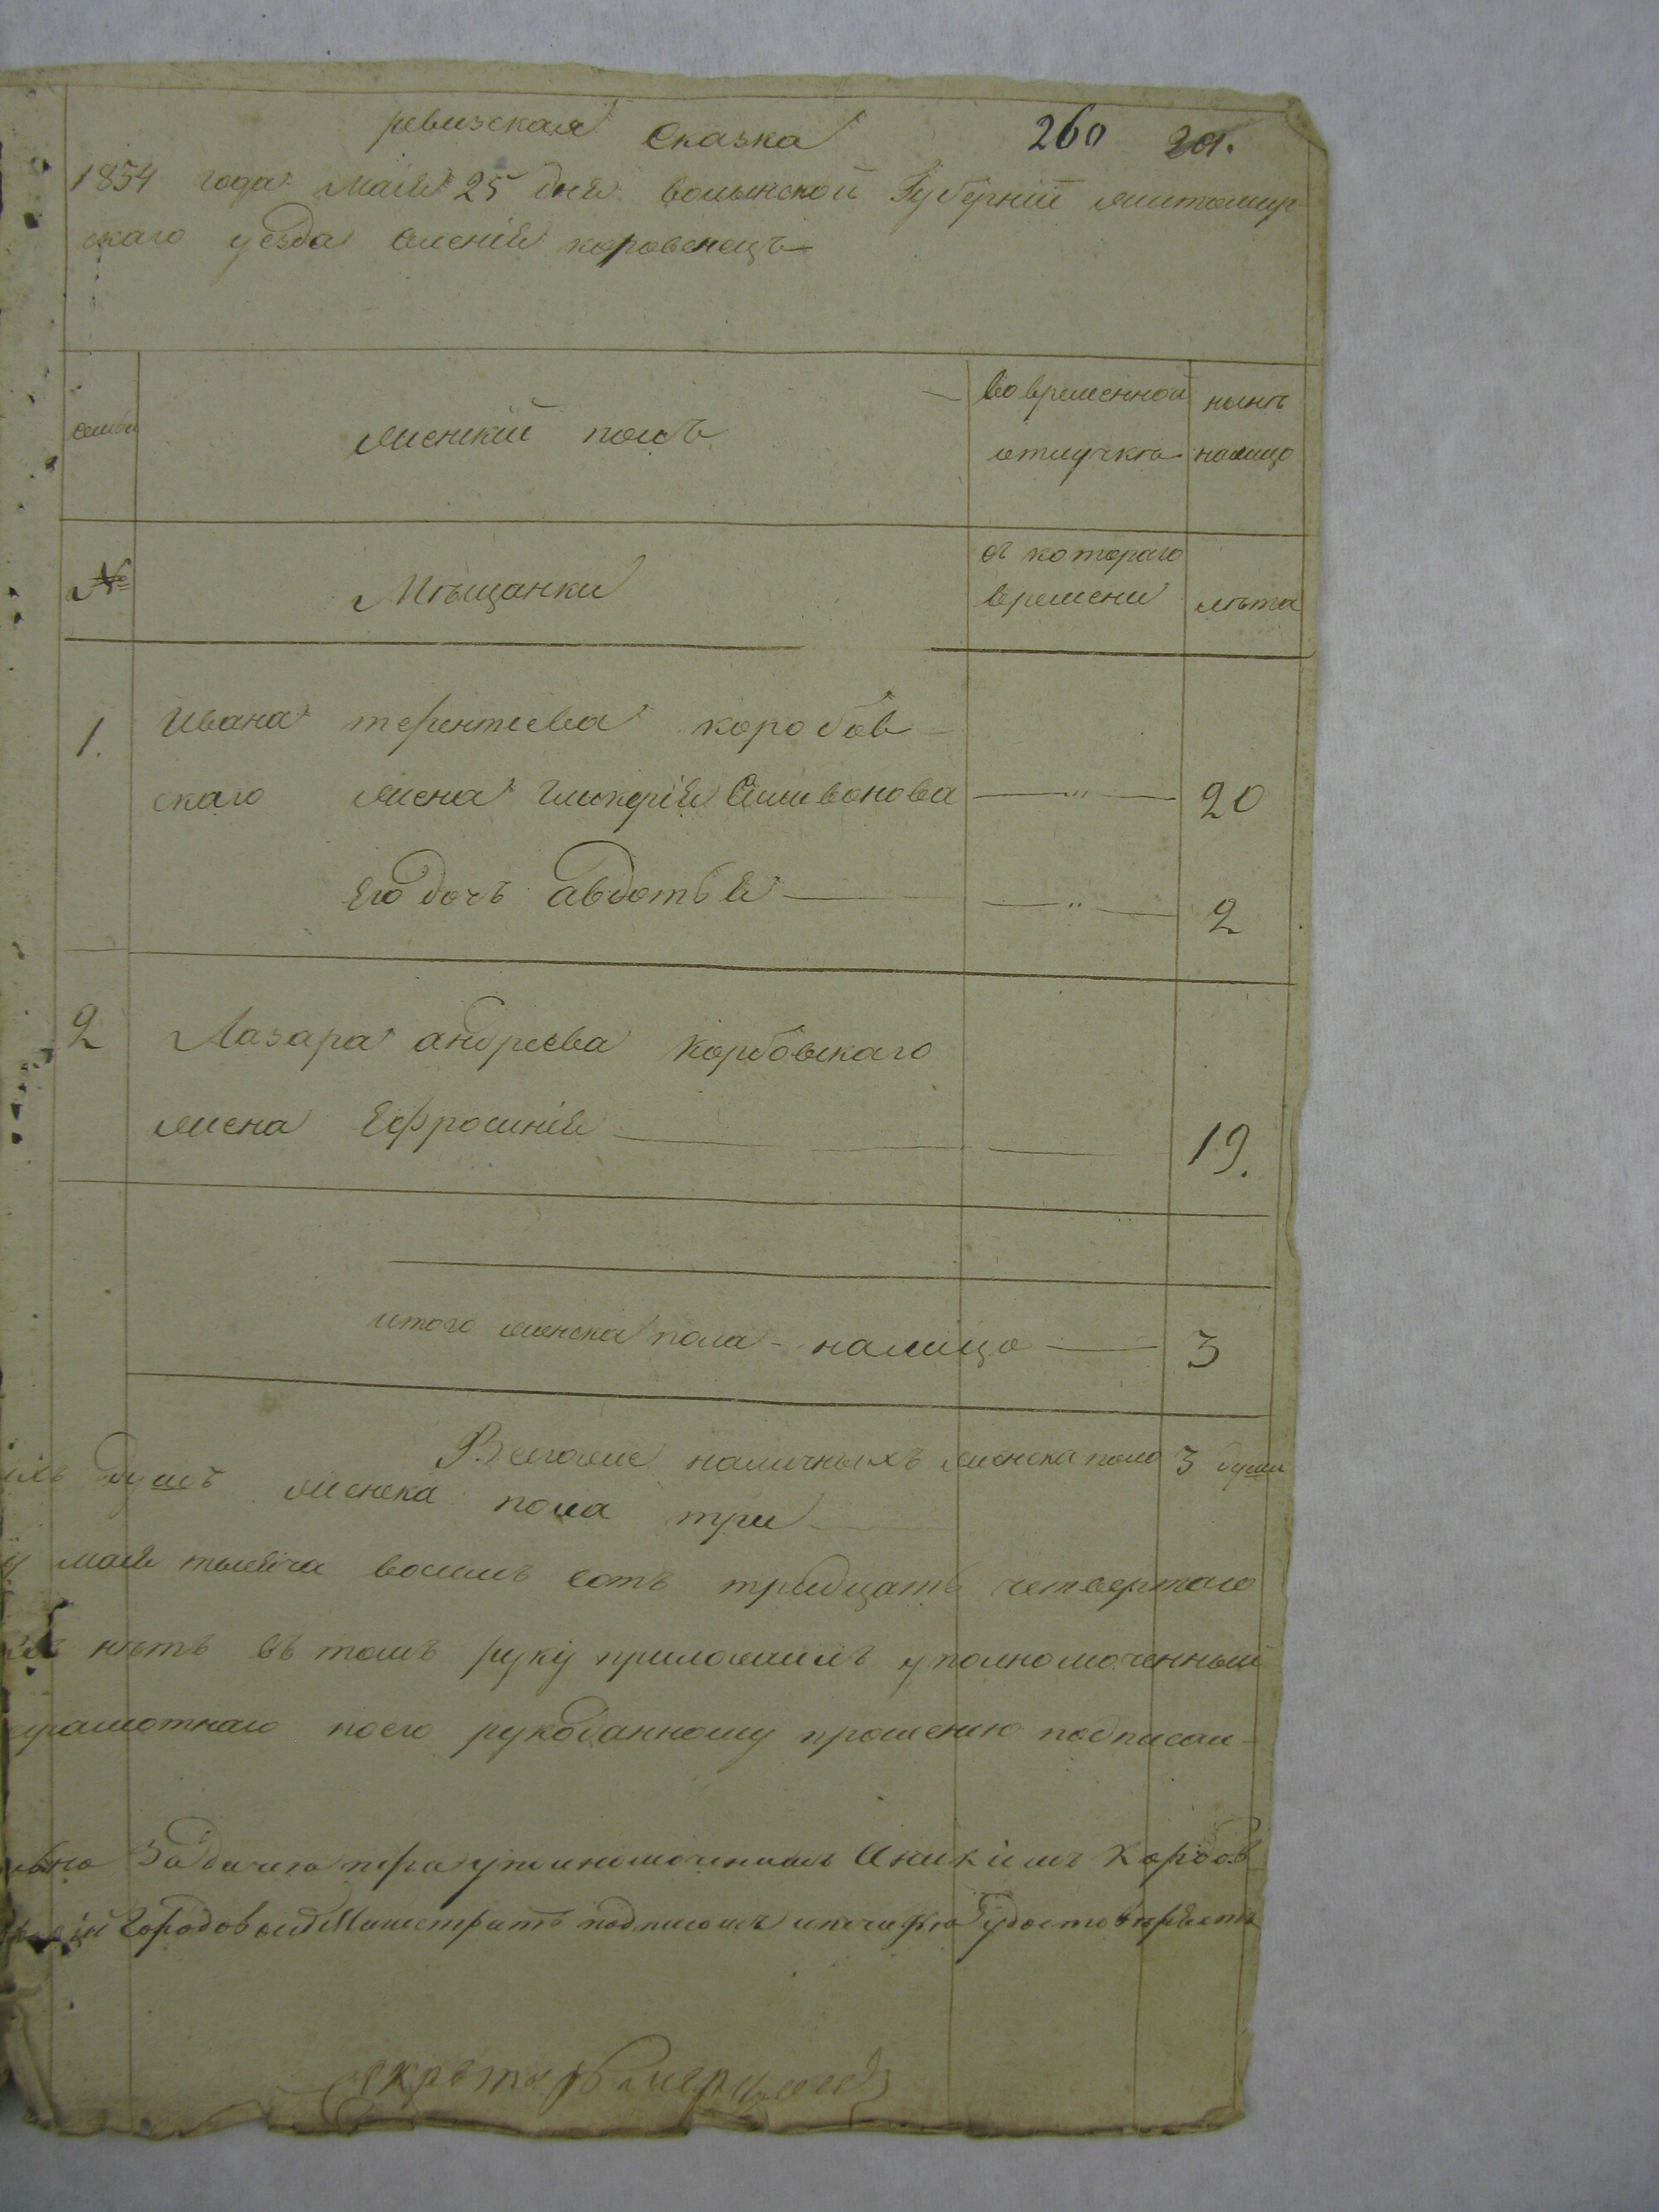 ревизская Сказка 260 20.
1834 года Маія 25 дня волынской Губерніи житомир
скаго уезда Селенія коровенецъ
семьи женскій полъ вовременной нынѣ
отлучкѣ налицо
№ Мѣщанки съ котораго
времени лѣта
1. Ивана терентиева коробов
скаго жена Гликерія Селивонова — " — 20
Его дочь авдотья — " — 2
2 Лазара андреева коробовскаго
жена Ефросинія 19.
итого женска пола налицо — 3
Всегоже наличныхъ женска пола 3 души
душъ женска пола три
маія тысяча восимь сотъ тридцать четвертаго
нѣтъ въ томъ руку приложилъ уполномоченный
грамотнаго поего рукоданному прошению подписал
Задачию пера уполномоченнымъ
Городовый Магистратъ подписомъ ипечатю Удостовѣряетъ